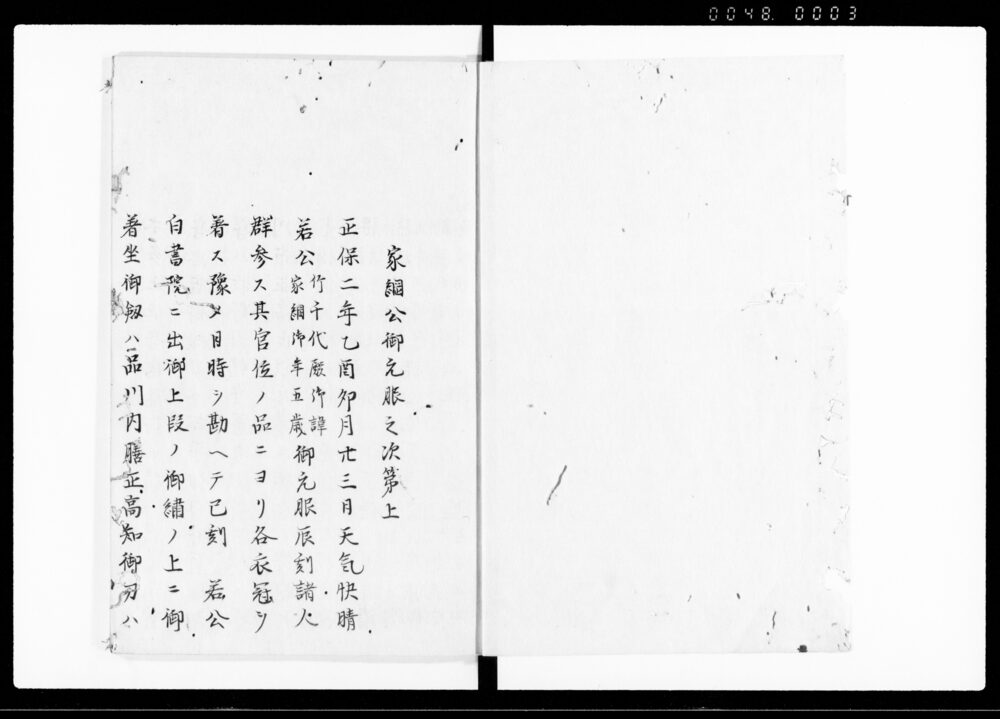 0048. 0003
家綱公御元服之次第上
正保二年乙酉卯月廿三日天气快晴
若公
竹千代殿御諱
家綱御年五歳
御元服辰刻諸人
群参ス其官位ノ品ニヨリ各衣冠ヲ
着ス豫メ日時ヲ勘ヘテ已刻 若公
白書院ニ出御上段ノ御繡ノ上ニ御
著坐御釼ハ品川内膳正高知御刀ハ